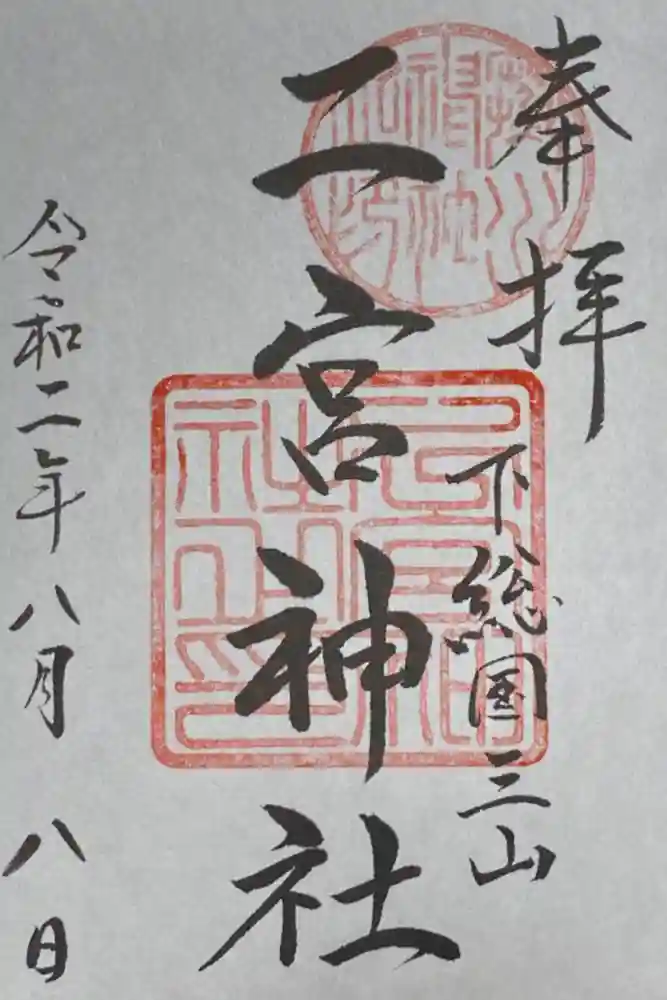 奉拝
下総国三山
二宮神社
令和二年八月八日